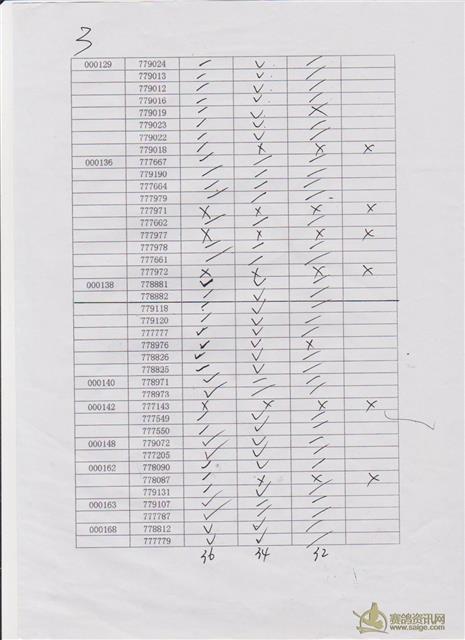 3
000129 779024 / ✓ /
779013 / ✓ /
779012 / ✓ /
779016 / ✓ /
779019 / ✓ X
779023 / ✓ /
779022 / ✓ /
779018 / X X X
000136 777667 / / /
779190 / / /
777664 / / /
777979 / / /
777971 X X X X
777662 / / /
777977 X X X X
777978 / / /
777661 / / /
777972 X X X X
000138 778881 ✓ ✓ /
778882 / ✓ /
779118 / ✓ /
779120 / ✓ /
777777 ✓ ✓ /
778976 ✓ ✓ X
778826 ✓ ✓ /
778825 ✓ ✓ /
000140 778971 ✓ / /
778973 ✓ / /
000142 777143 X X X X
777549 / ✓ /
777550 / ✓ /
000148 779072 ✓ ✓ /
777205 ✓ ✓ /
000162 778090 ✓ ✓ /
778087 / X X X
779131 / ✓ /
000163 779107 ✓ / /
777787 ✓ / /
000168 778812 ✓ ✓ /
777779 ✓ ✓ /
36 34 32
赛鸽资讯网
www.saige.com